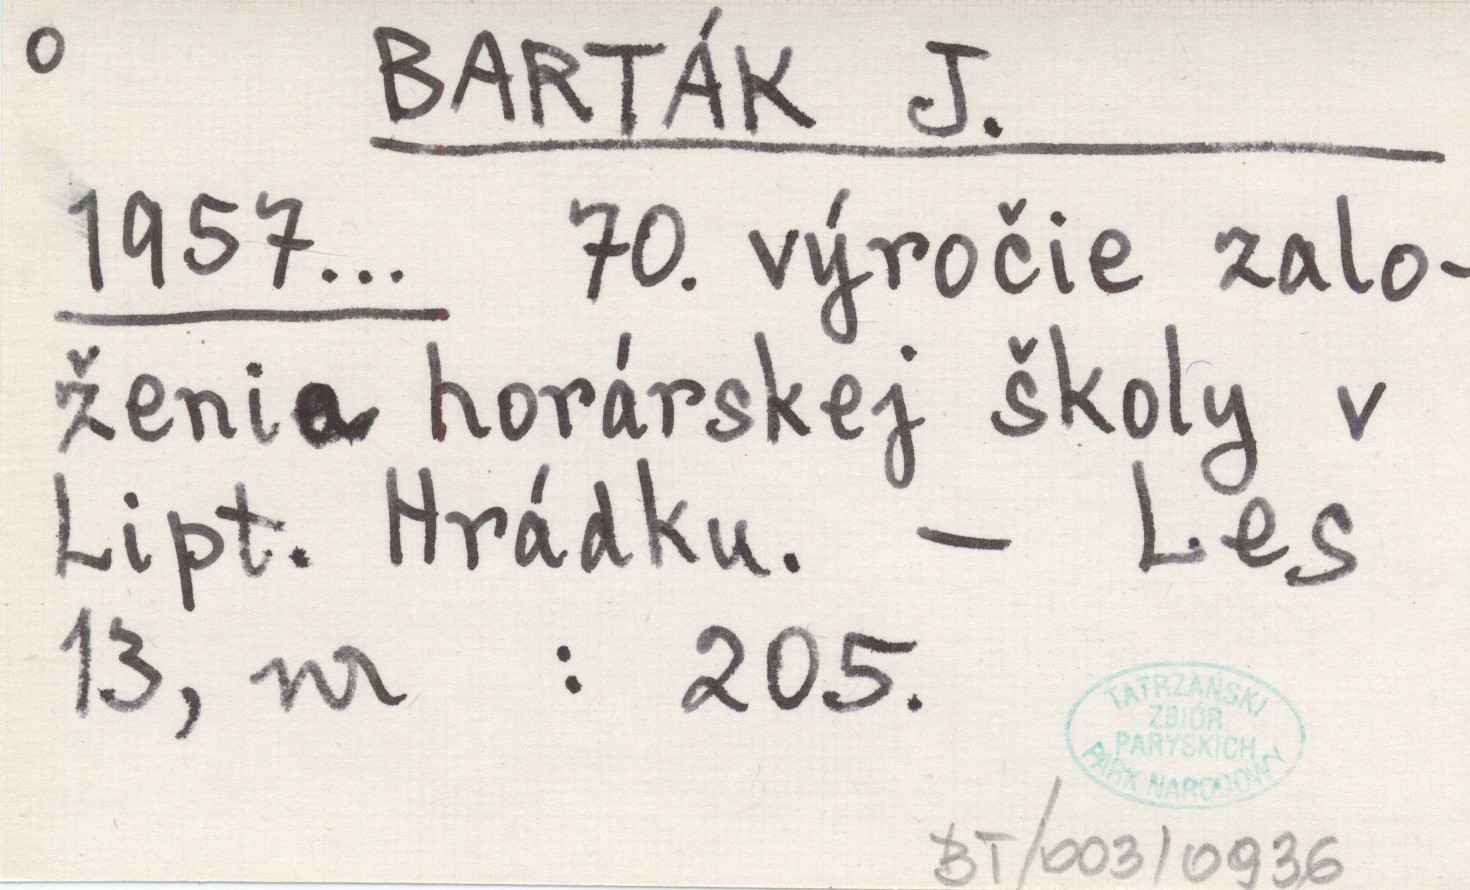 o BARTÁK J.
1957... 70. výročie zalo-
ženia horárskej školy v
Lipt. Hrádku. — Les
13, nr : 205.
TATRZAŃSKI
ZBIÓR
PARYSKICH
PARK NARODOWY
BT/003/0936